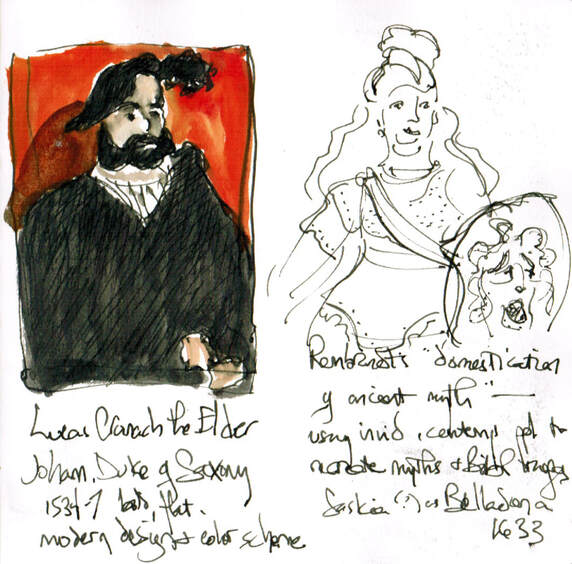 Lucas Cranach the Elder
Johann, Duke of Saxony
1534-7 bold, flat.
modern design + color scheme
Rembrandt's "domestication
of ancient myth" —
using, contemp ppl to
recreate myths + Biblical images
Saskia (?) as Belladona
1633